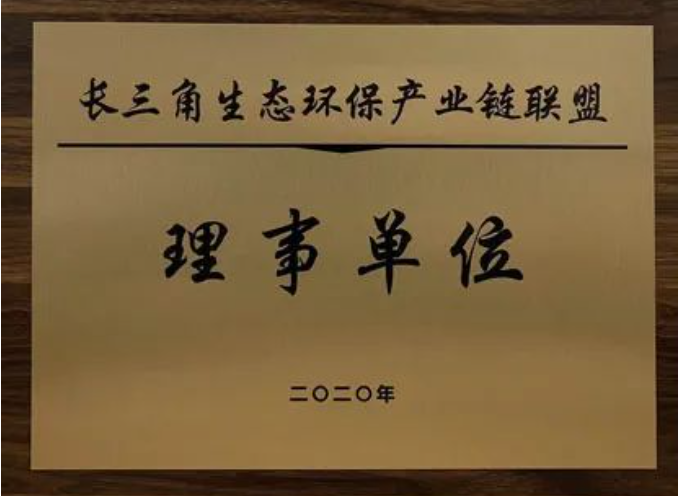 长三角生态环保产业链联盟
理事单位
二〇二〇年